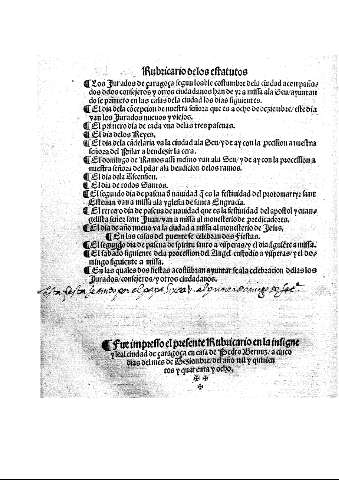 Rubricario de los estatutos
¶ Los Jurados de çaragoça segun loable costumbre dela ciudad acompaña-
dos delos consejeros y otros ciudadanos han de yr a missa ala Seu / ayuntan
do se primero en las casas dela ciudad los dias siguientes.
¶ El dia dela cōcepcion de nuestra señora que es a ocho de deziembre / este dia
van los Jurados nueuos y viejos.
¶ El primero dia de cada vna delas tres pascuas.
¶ El dia delos Reyes.
¶ El dia dela cādelaria va la ciudad ala Seu / y de ay con la pcession a nuestra
señora del Pilar a bendezir la cera.
¶ El domingo de Ramos assi mesmo van ala Seu / y de ay con la procession a
nuestra señora del pilar ala bendicion delos ramos.
¶ El dia dela Ascension.
¶ El dia de todos Santos.
¶ El segundo dia de pascua d nauidad q̄ es la festiuidad del protomartyr sant
Esteuan van a missa ala yglesia de sancta Engracia.
¶ El tercero dia de pascua de nauidad que es la festiuidad del apostol y euan-
gelista señor sant Juan / van a missa al monesterio de predicadores.
¶ El dia de año nueuo va la ciudad a missa al monesterio de Jesus.
¶ En las casas del puente se celebran dos fiestas.
¶ El segundo dia de pascua de spiritu sancto a visperas / y el dia siguiēte a missa.
¶ El sabado siguiente dela procession del Angel custodio a visperas / y el do-
mingo siguiente a missa.
¶ En las quales dos fiestas acostūbran ayuntar se ala celebracion dellas los
Jurados / consejeros / y otros ciudadanos.
¶ Fue impresso el presente Rubricario en la insigne
y leal ciudad de çaragoça en casa de Pedro Bernuz / a cinco
dias del mes de Deziembre / del año mil y quinien
tos y quarenta y ocho.